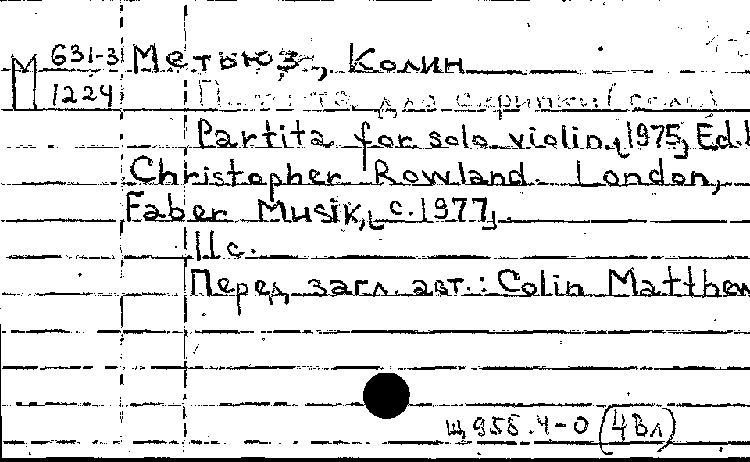 М 631-3 Метьюз, Колин
1224 Партита для скрипки (соло)
Partita for solo violin, [1975] Ed.
Christopher Rowland. London,
Faber Musik, [c. 1977].
11 с.
Перед загл. авт.: Colin Matthew
Щ 955.4-0 (4Вл)